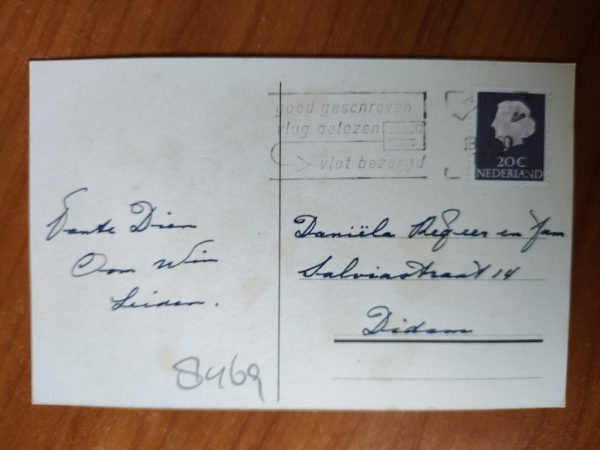 goed geschreven
vlug gelezen
vlot bezorgd
20 C
NEDERLAND
Tante Dien
Oom Wim
Leiden.
Daniëla Regeer en fam
Salviastraat 14
Didam
8469